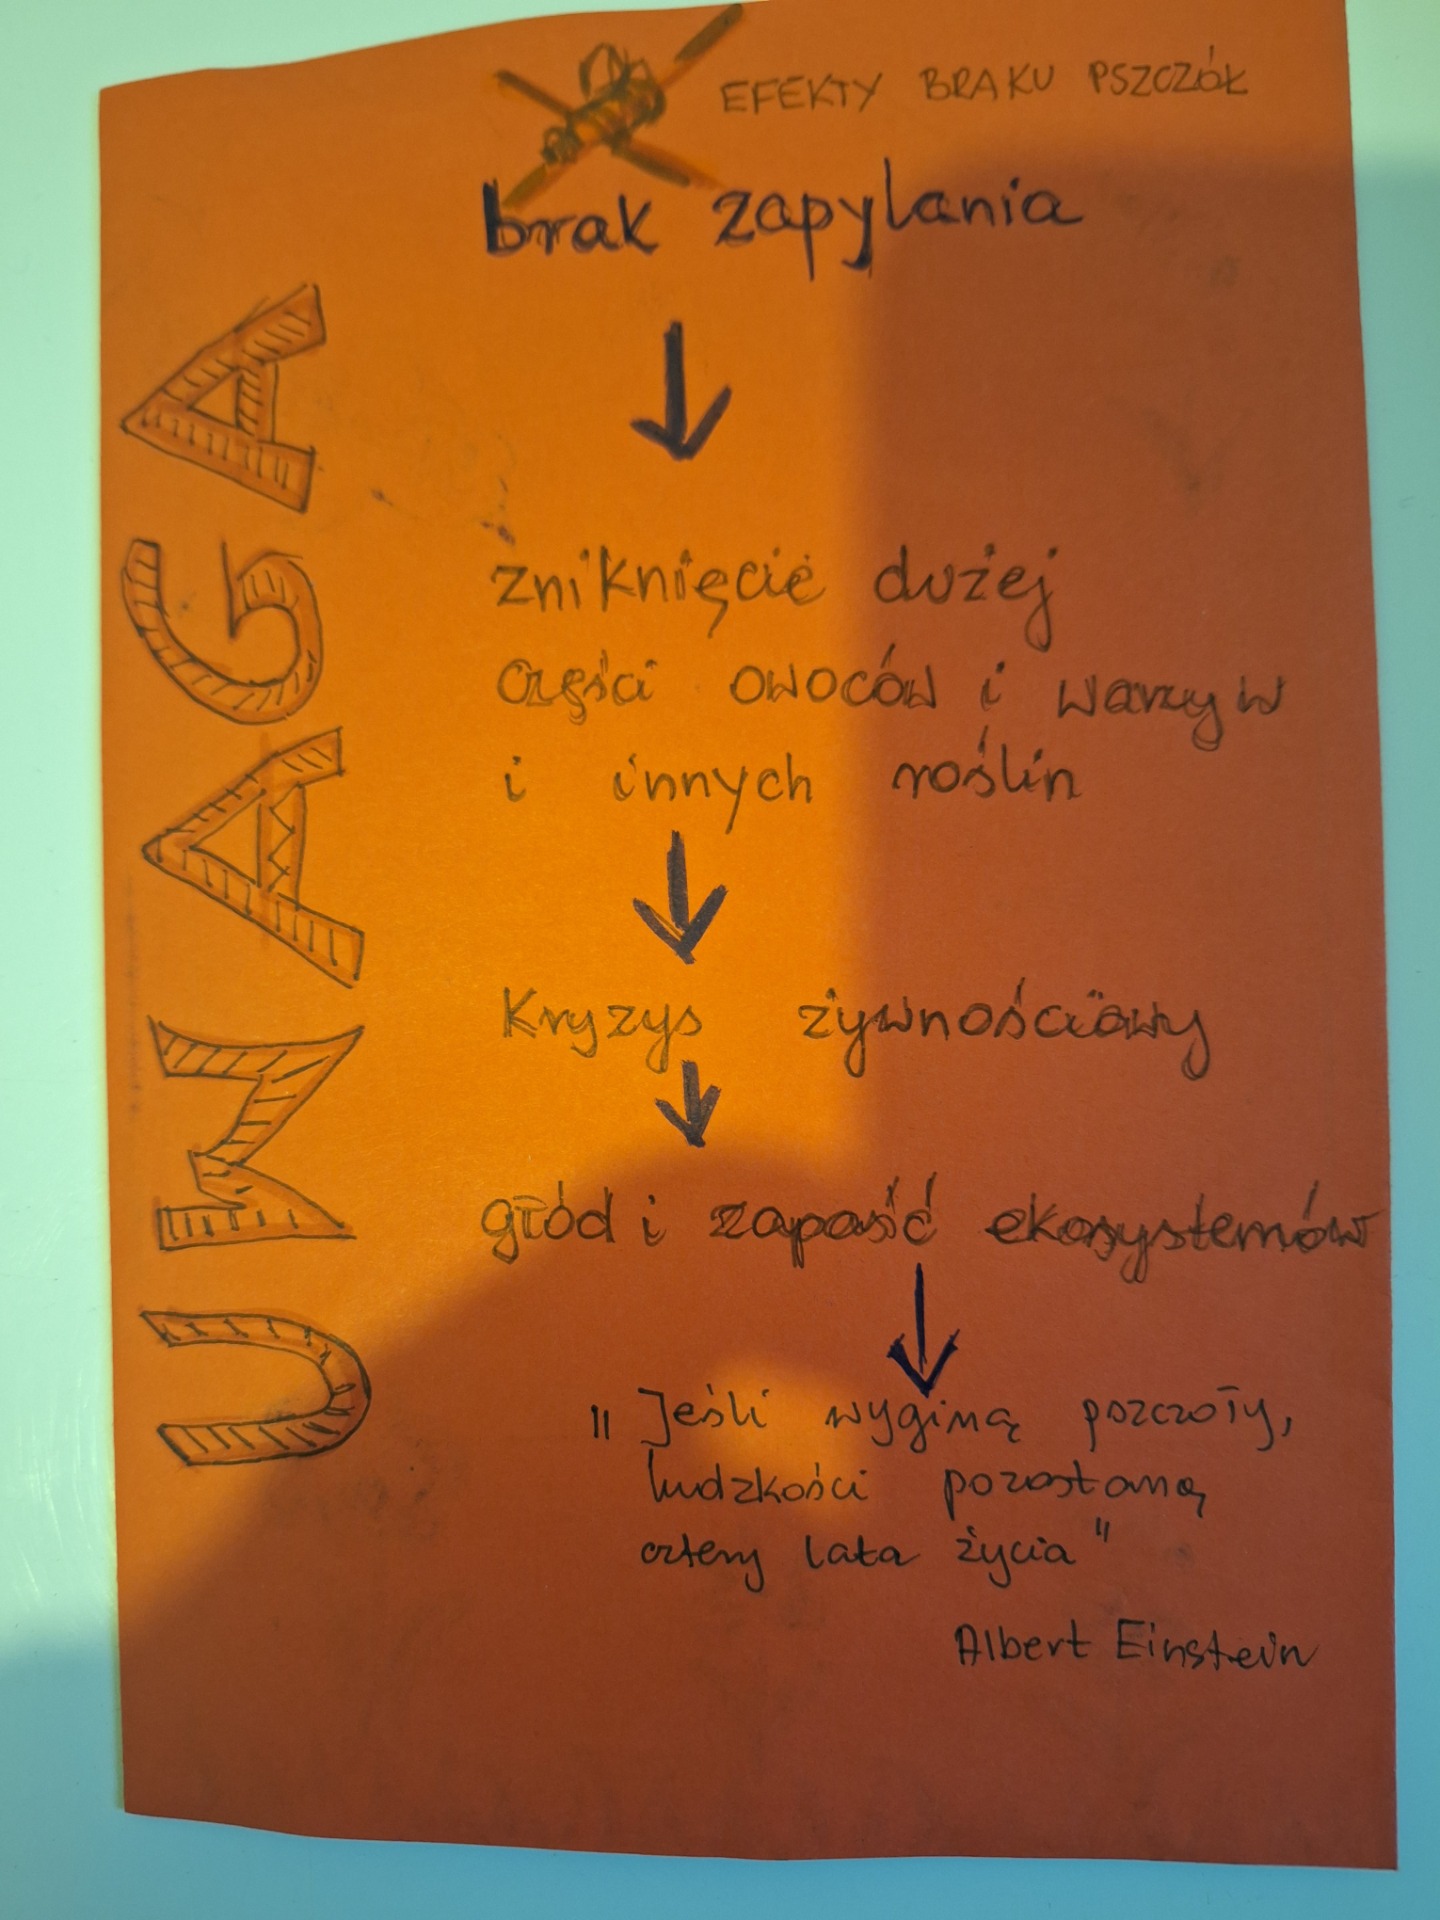 EFEKTY BRAKU PSZCZÓŁ
brak zapylania
UWAGA
zniknięcie dużej
części owoców i warzyw
i innych roślin
Kryzys żywnościowy
głód i zapaść ekosystemów
"Jeśli wyginą pszczoły,
ludzkości pozostaną
cztery lata życia"
Albert Einstein